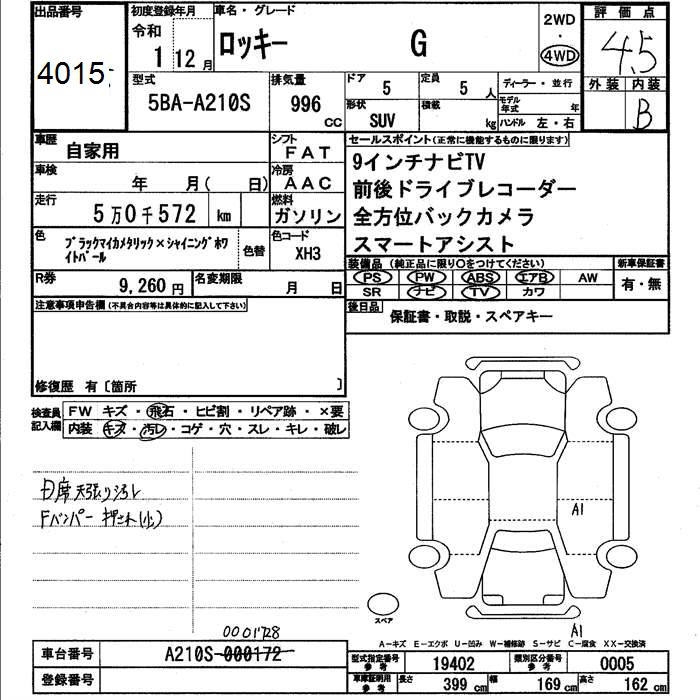 出品番号
4015
初度登録年月
令和
1 12月
車名・グレード
ロッキー G
2WD
・
4WD
評価点
4.5
型式
5BA-A210S
排気量
996
CC
ドア
5
定員
5人
形状
SUV
積載
kg
ディーラー・並行
モデル年式 年
ハンドル 左・右
外装 内装
B
車歴
自家用
シフト
FAT
車検
年 月( 日)
冷房
AAC
走行
5万0千572 km
燃料
ガソリン
色
ブラックマイカメタリック×シャイニングホワイトパール
色替
色コード
XH3
R券
9,260円
名変期限
月 日
セールスポイント(正常に機能するものに限ります)
9インチナビTV
前後ドライブレコーダー
全方位バックカメラ
スマートアシスト
装備品(純正品に限り〇をつけてください)
PS PW ABS エアB AW
SR ナビ TV カワ
新車保証書
有・無
後日品
保証書・取説・スペアキー
注意事項申告欄(不具合内容等は具体的に記入して下さい)
修復歴 有〔箇所 〕
検査員記入欄
FW キズ・飛石・ヒビ割・リペア跡・×要
内装 キズ・汚レ・コゲ・穴・スレ・キレ・破レ
天張り汚レ
Fバンパー押され(小)
A1
スペア
A1
A-キズ E-エクボ U-凹み W-補修跡 S-サビ C-腐食 XX-交換済
0001728
車台番号
A210S-000172
登録番号
型式指定番号 参考
19402
類別区分番号 参考
0005
車庫証明用 参考
長さ 399 cm
幅 169 cm
高さ 162 cm